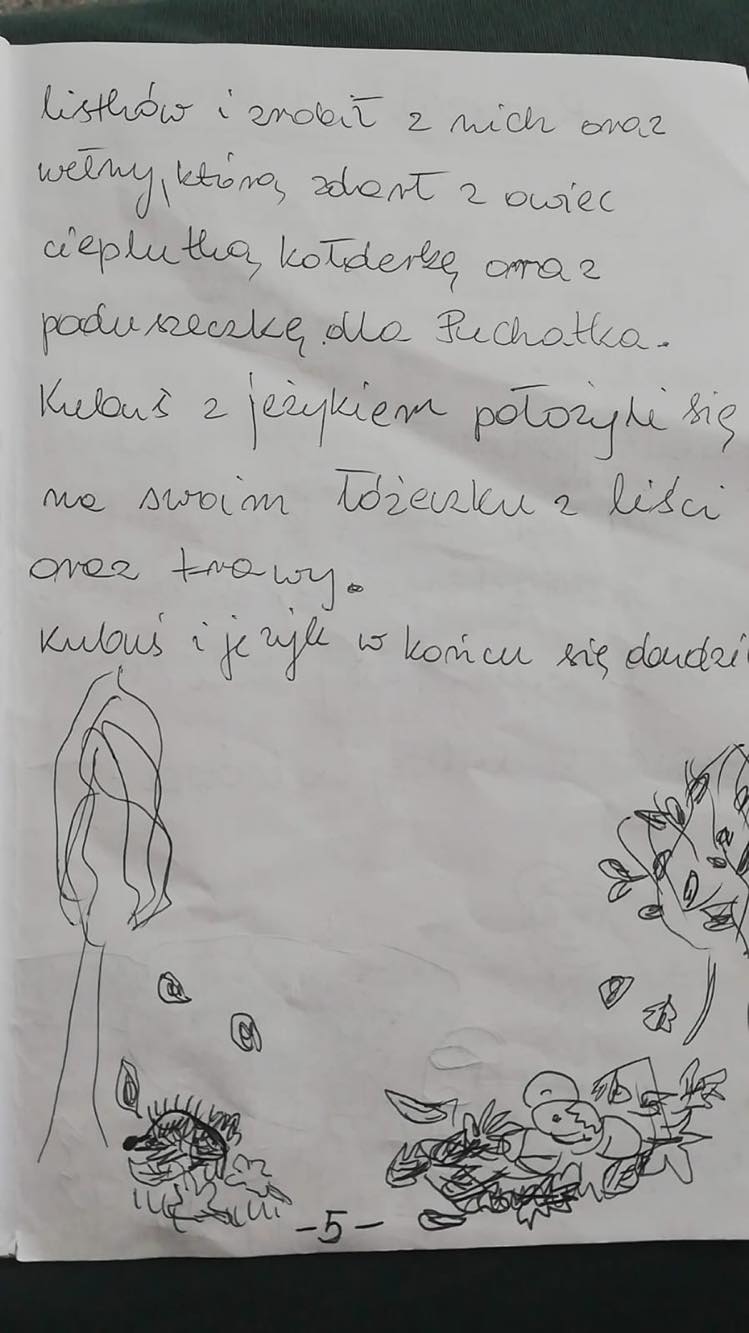 listków i zrobił z nich oraz
wełny, którą zdarł z owiec
cieplutką kołderkę oraz
poduszeczkę dla Puchatka.
Kubuś z jeżykiem położyli się
na swoim łóżeczku z liści
oraz trawy.
Kubuś i jeżyk w końcu się
-5-